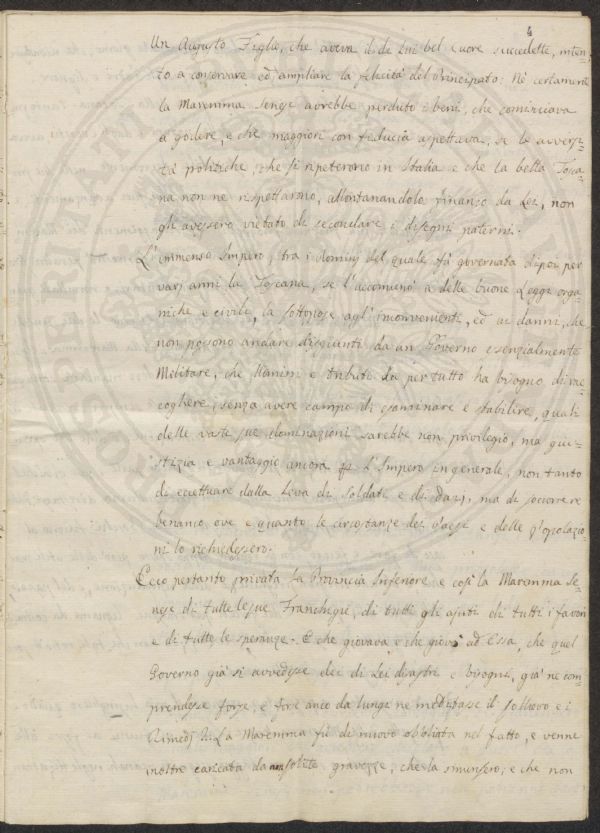 4
Un Augusto Figlio, che aveva il di Lui bel Cuore succedette, inten-
to a conservare ed ampliare la felicità del Principato: Nè certamente
la Maremma Senese avrebbe perduto i beni, che cominciava
a godere, e che maggiori con fiducia aspettava, se le avversi-
tà politiche, che si ripeterono in Italia e che la bella Tosca-
na non ne rispettarono, allontanandolo finanço da Lei, non
gli avessero vietato di secondare i disegni paterni.
L'immenso Impero, tra i dominj del quale fù governata dipoi per
varj anni la Toscana, se l'accomunò a delle buone Leggi orga-
niche e civili, la sottopose agl'inconvenienti, ed ai danni, che
non possono andare disgiunti da un Governo essenzialmente
Militare, che Uomini e tributi da per tutto ha bisogno di rac-
cogliere, senza avere campo di esaminare e stabilire, quali
delle vaste sue dominazioni sarebbe non privilegio, ma giu-
stizia e vantaggio ancora L'Impero in generale, non tanto
di eccettuare dalla Leva di Soldati e di dazj, ma di soccorrere
benanco, ove e quanto le circostanze dei Paesi e delle Popolazio-
ni lo richiedessero.
Ecco pertanto privata la Provincia Inferiore e così la Maremma Se-
nese di tutte le sue Franchigie, di tutti gli ajuti di tutti i favori
e di tutte le speranze. E che giovava, e che giovò ad Essa, che quel
Governo già si avvedesse dei di Lei disastri e bisogni, già ne com-
prendesse forse, e fors'anco da lungi ne meditasse il sollievo e i
Rimedj? La Maremma fù di nuovo obbliata nel fatto, e venne
inoltre caricata da insolite gravezze, che la smunsero, e che non